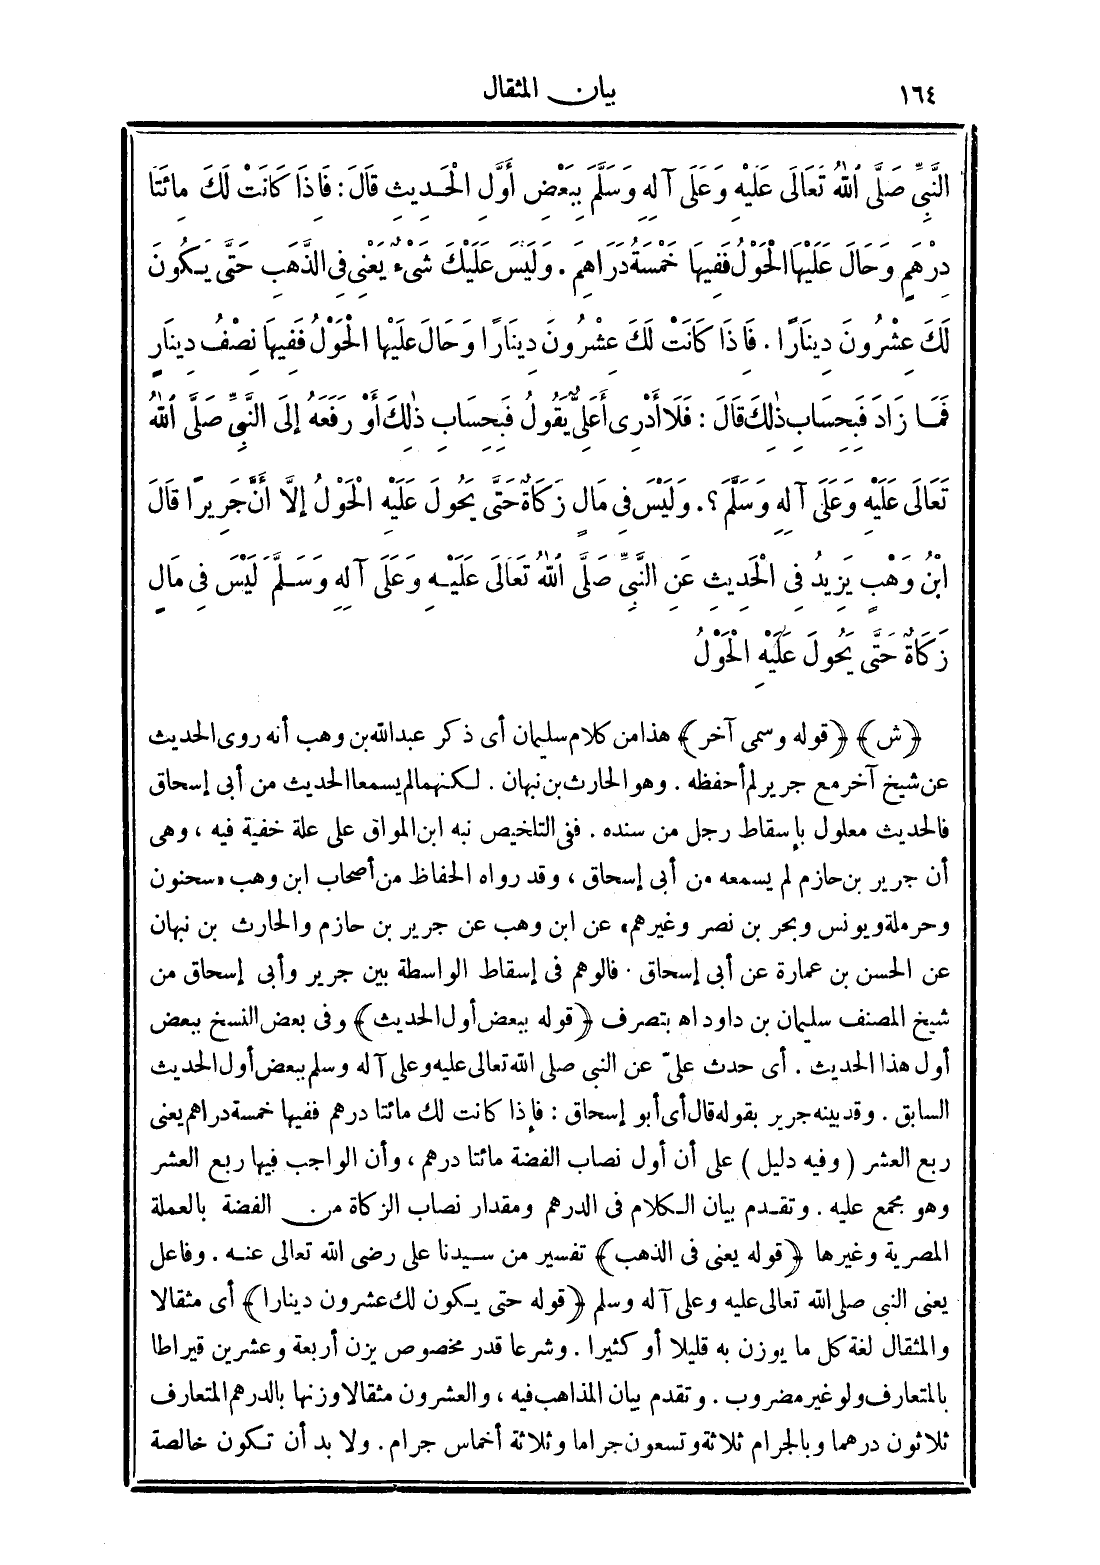 ١٦٤
بيان المثقال
النَّبِيِّ صَلَّى ٱللهُ تَعَالَى عَلَيْهِ وَعَلَى آلِهِ وَسَلَّمَ بِبَعْضِ أَوَّلِ الْحَدِيثِ قَالَ : فَاذَا كَانَتْ لَكَ مِائَتَا
دِرْهَمٍ وَحَالَ عَلَيْهَا الْحَوْلُ فَفِيهَا خَمْسَةُ دَرَاهِمَ . وَلَيْسَ عَلَيْكَ شَيْءٌ يَعْنِي فِي الذَّهَبِ حَتَّى يَكُونَ
لَكَ عِشْرُونَ دِينَارًا . فَاذَا كَانَتْ لَكَ عِشْرُونَ دِينَارًا وَحَالَ عَلَيْهَا الْحَوْلُ فَفِيهَا نِصْفُ دِينَارٍ
فَمَا زَادَ فَبِحِسَابِ ذٰلِكَ قَالَ : فَلَا أَدْرِى أَعَلِيٌّ يَقُولُ فَبِحِسَابِ ذٰلِكَ أَوْ رَفَعَهُ إِلَى النَّبِيِّ صَلَّى ٱللهُ
تَعَالَى عَلَيْهِ وَعَلَى آلِهِ وَسَلَّمَ ؟. وَلَيْسَ فِي مَالٍ زَكَاةٌ حَتَّى يَحُولَ عَلَيْهِ الْحَوْلُ إلَّا أَنَّ جَرِيرًا قَالَ
ابْنُ وَهْبٍ يَزِيدُ فِي الْحَدِيثِ عَنِ النَّبِيِّ صَلَّى ٱللهُ تَعَالَى عَلَيْهِ وَعَلَى آلِهِ وَسَلَّمَ لَيْسَ فِي مَالٍ
زَكَاةٌ حَتَّى يَحُولَ عَلَيْهِ الْحَوْلُ
﴿ش﴾ ﴿قوله وسمى آخر﴾ هذا من كلام سليمان أى ذكر عبد الله بن وهب أنه روى الحديث
عن شيخ آخر مع جرير لم أحفظه . وهو الحارث بن نبهان . لكنهما لم يسمعا الحديث من أبى إسحاق
فالحديث معلول بإسقاط رجل من سنده . ففى التلخيص نبه ابن المواق على علة خفية فيه ، وهى
أن جرير بن حازم لم يسمعه من أبى إسحاق ، وقد رواه الحفاظ من أصحاب ابن وهب «سحنون
وحرملة ويونس وبحر بن نصر وغيرهم» عن ابن وهب عن جرير بن حازم والحارث بن نبهان
عن الحسن بن عمارة عن أبى إسحاق . فالوهم فى إسقاط الواسطة بين جرير وأبى إسحاق من
شيخ المصنف سليمان بن داود اه بتصرف ﴿قوله ببعض أول الحديث﴾ وفى بعض النسخ ببعض
أول هذا الحديث . أى حدث علىّ عن النبى صلى الله تعالى عليه وعلى آله وسلم ببعض أول الحديث
السابق . وقد بينه جرير بقوله قال أى أبو إسحاق : فإذا كانت لك مائتا درهم ففيها خمسة دراهم يعنى
ربع العشر ( وفيه دليل ) على أن أول نصاب الفضة مائتا درهم ، وأن الواجب فيها ربع العشر
وهو مجمع عليه . وتقدم بيان الكلام فى الدرهم ومقدار نصاب الزكاة من الفضة بالعملة
المصرية وغيرها ﴿قوله يعنى فى الذهب﴾ تفسير من سيدنا على رضى الله تعالى عنه . وفاعل
يعنى النبى صلى الله تعالى عليه وعلى آله وسلم ﴿قوله حتى يكون لك عشرون دينارا﴾ أى مثقالا
والمثقال لغة كل ما يوزن به قليلا أو كثيرا . وشرعا قدر مخصوص يزن أربعة وعشرين قيراطا
بالمتعارف ولو غير مضروب . وتقدم بيان المذاهب فيه ، والعشرون مثقالا وزنها بالدرهم المتعارف
ثلاثون درهما وبالجرام ثلاثة وتسعون جراما وثلاثة أخماس جرام . ولا بد أن تكون خالصة